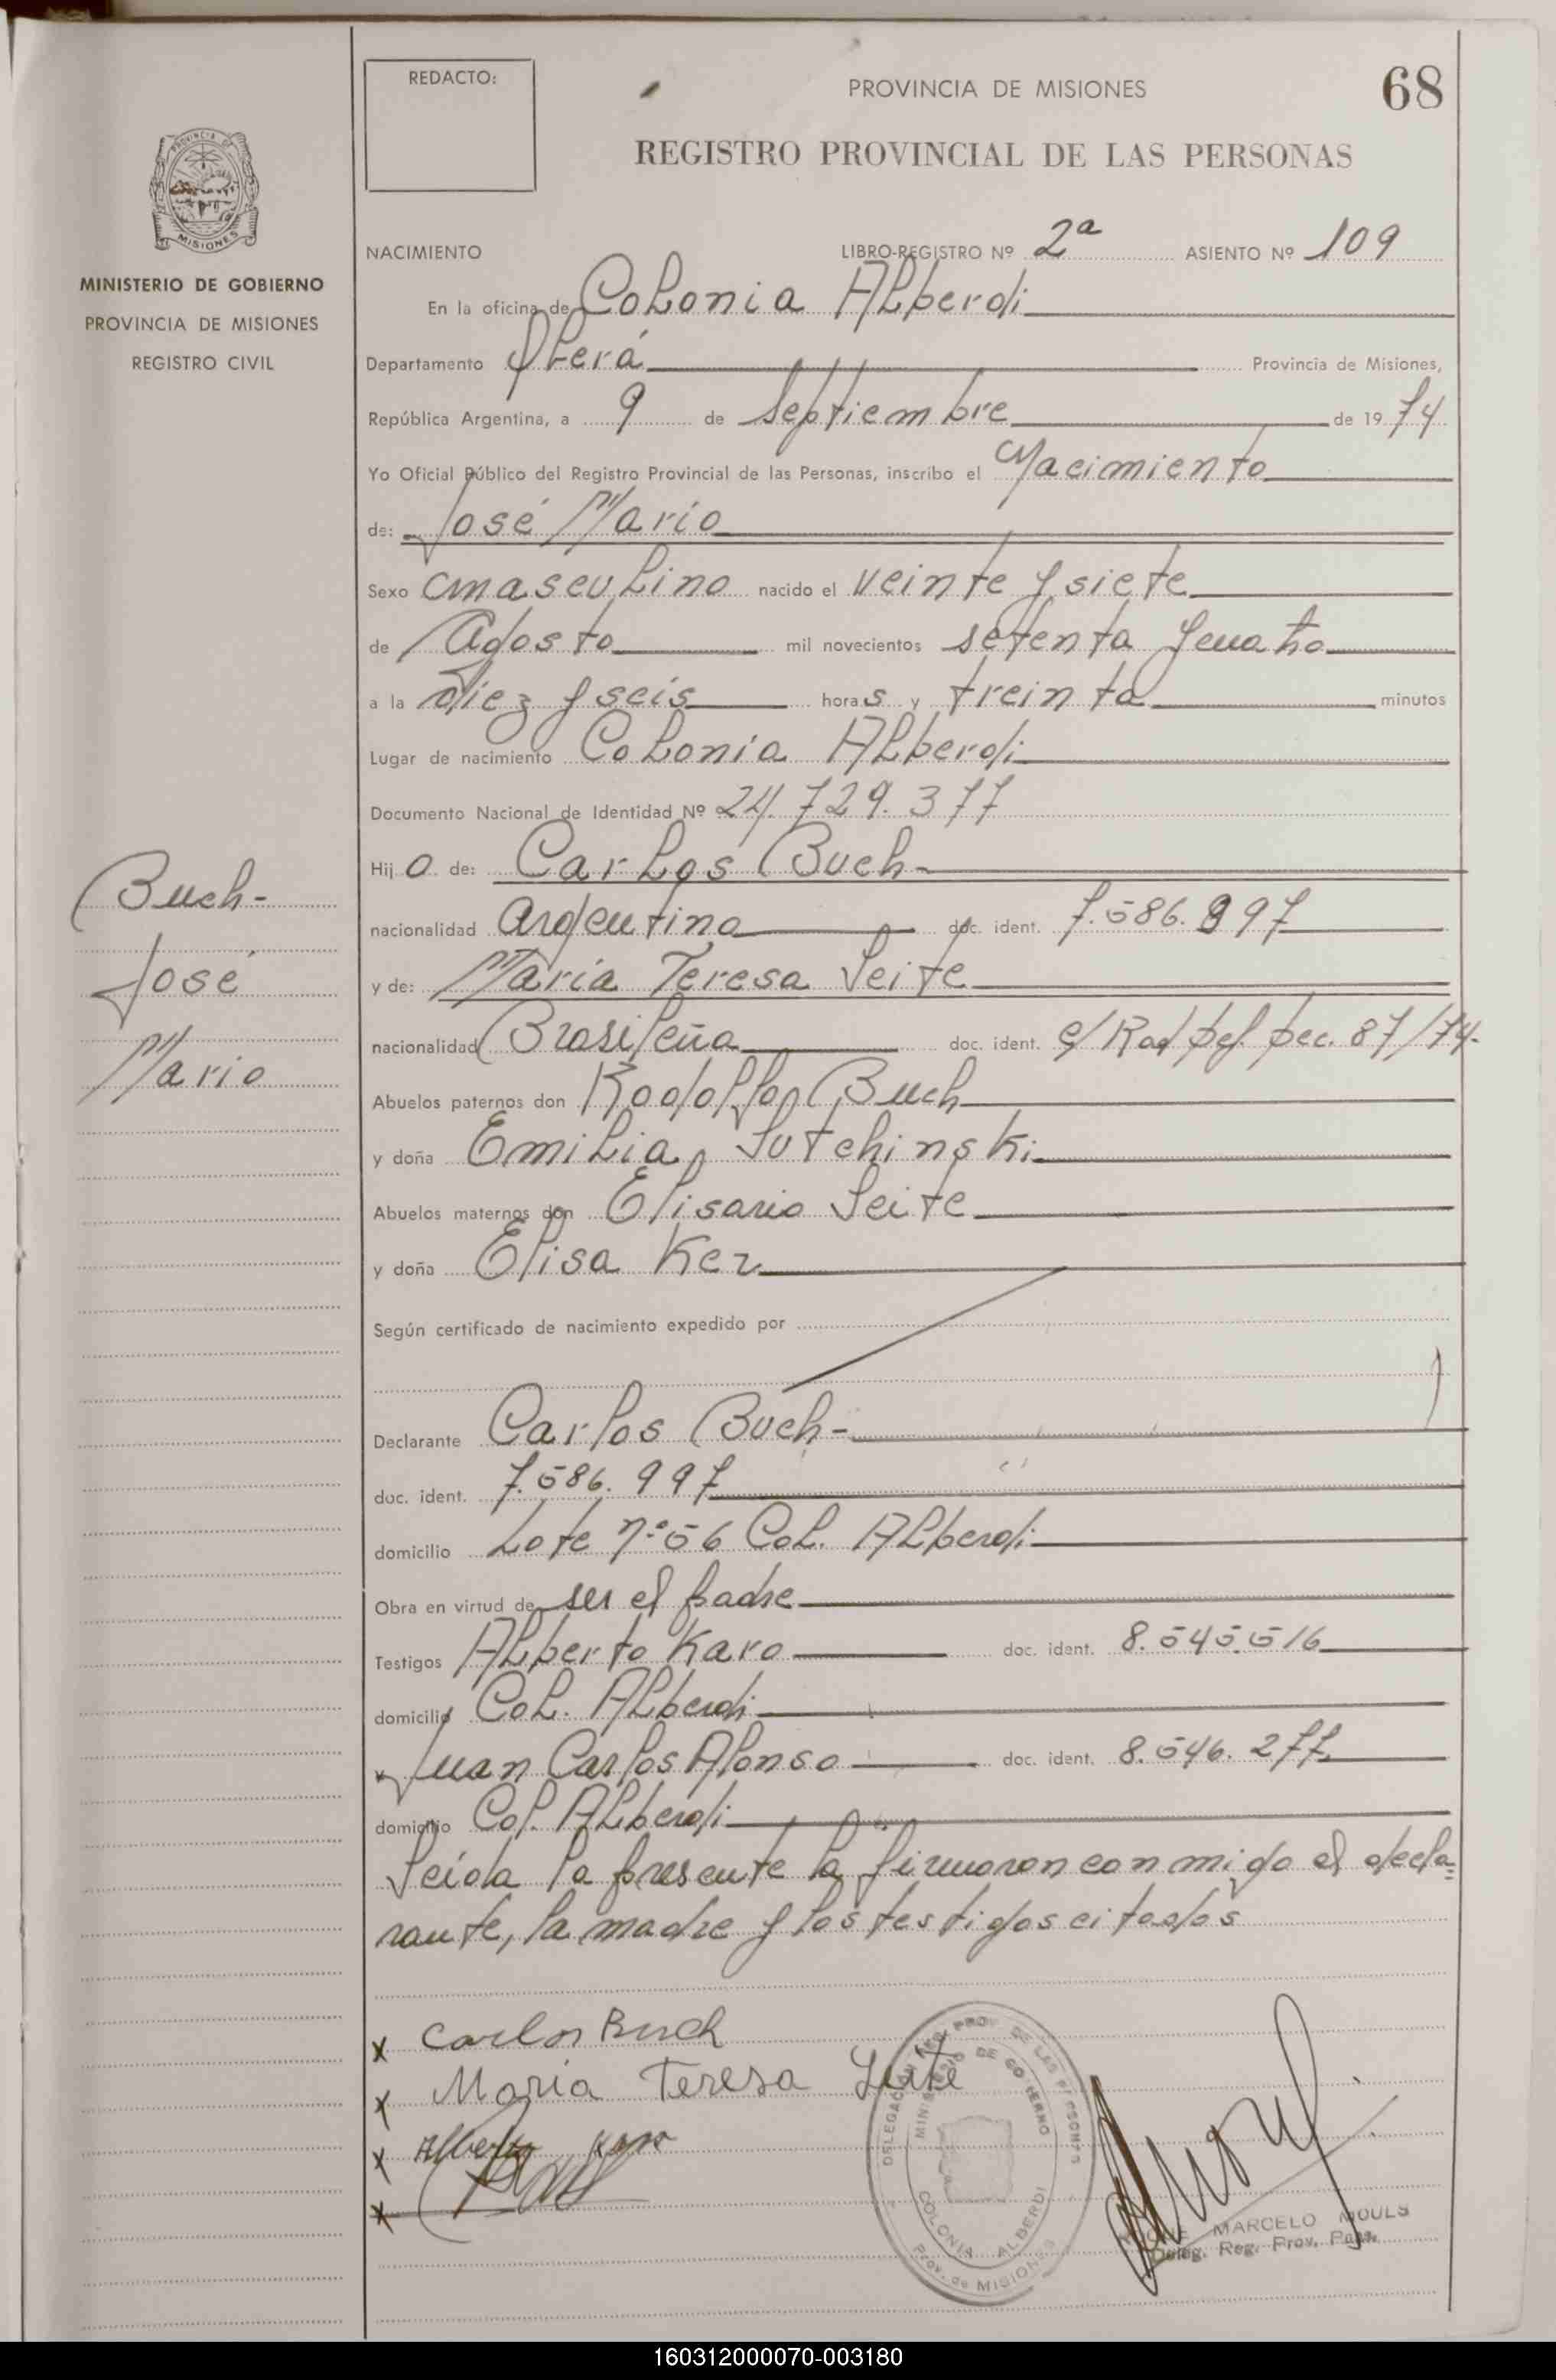 REDACTO:
PROVINCIA DE MISIONES
68
REGISTRO PROVINCIAL DE LAS PERSONAS
PROVINCIA DE
MISIONES
MINISTERIO DE GOBIERNO
PROVINCIA DE MISIONES
REGISTRO CIVIL
NACIMIENTO LIBRO-REGISTRO Nº 2ª ASIENTO Nº 109
En la oficina de Colonia Alberdi
Departamento Oberá Provincia de Misiones,
República Argentina, a 9 de Septiembre de 1974
Yo Oficial Público del Registro Provincial de las Personas, inscribo el Nacimiento
de: José Mario
Sexo masculino nacido el veinte y siete
de Agosto mil novecientos setenta y cuatro
a la diez y seis horas y treinta minutos
Lugar de nacimiento Colonia Alberdi
Documento Nacional de Identidad Nº 24.729.377
Hijo de: Carlos Buch-
nacionalidad argentina doc. ident. 7.586.997
y de: María Teresa Leite
nacionalidad Brasileña doc. ident. c/Rad 87/74.
Abuelos paternos don Rodolfo Buch
y doña Emilia Lutchinski
Abuelos maternos don Elisario Leite
y doña Elisa Ker
Según certificado de nacimiento expedido por
Declarante Carlos Buch-
doc. ident. 7.586.997
domicilio Lote nº 56 Col. Alberdi
Obra en virtud de ser el padre
Testigos Alberto Karo doc. ident. 8.545.516
domicilio Col. Alberdi
y Juan Carlos Alonso doc. ident. 8.546.277
domicilio Col. Alberdi
Leída la presente la firmaron conmigo el decla=
rante, la madre y los testigos citados
Buch-
José
Mario
x Carlos Buch
x Maria Teresa Leite
x Alberto Karo
x
DELEGACION REG. PROV. DE LAS PERSONAS
MINISTERIO DE GOBIERNO
COLONIA ALBERDI
Prov. de MISIONES
MARCELO MOULS
Deleg. Reg. Prov. Pers.
160312000070-003180